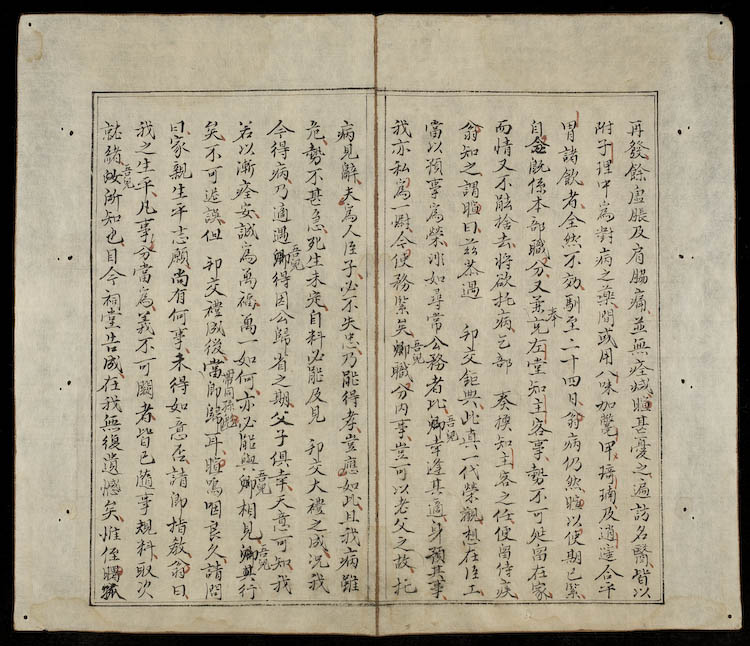 再發餘虛脹及肩腸痛並無痊減暄甚憂之遍訪名醫皆以
附子理中為對病之藥間或用八味加鱉甲及逍遙合平
胃諸飲者全然不効馴至二十四日翁病仍然暄以使期已緊
奉
自念既係本部職分又兼充左堂知主客事勢不可延留在家
而情又不能捨去將欲托病乞部 奏換知主客之任便留侍疾
翁知之謂暄曰茲恭遇 邦交鉅典此真一代榮觀想在臣工
吾兒
當以預事為榮非如尋常公務者比卿幸逢其適身預其事
吾兒
我亦私為一慰今使務緊矣卿職分內事豈可以老父之故托
病見辭夫為人臣子必不失忠乃能得孝豈應如此且我病雖
危勢不甚急死生未定自料必能及見 邦交大禮之成況我
吾兒
今得病乃適遇卿得因公歸省之期父子俱幸天意可知我
吾兒 吾兒
若以漸痊安誠為萬福萬一如何亦必能與卿相見卿其行
帶同孫
矣不可遲誤但 邦交禮成後當即歸耳暄嗚咽良久請問
曰家親生平志願尚有何事未得如意否請即指教翁曰
我之生平凡事分當為義不可闕者皆已隨事規料取次
吾兒
就緒所知也目今祠堂告成在我無復遺憾矣惟侄孤